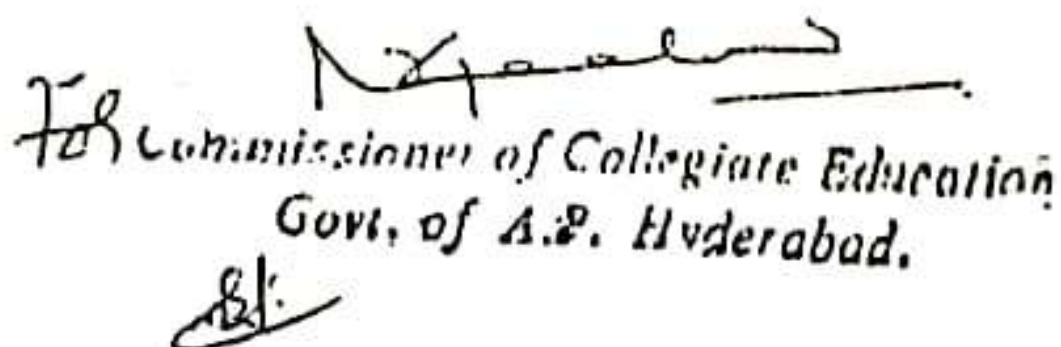 For Commissioner of Collegiate Education
Govt. of A.P. Hyderabad.